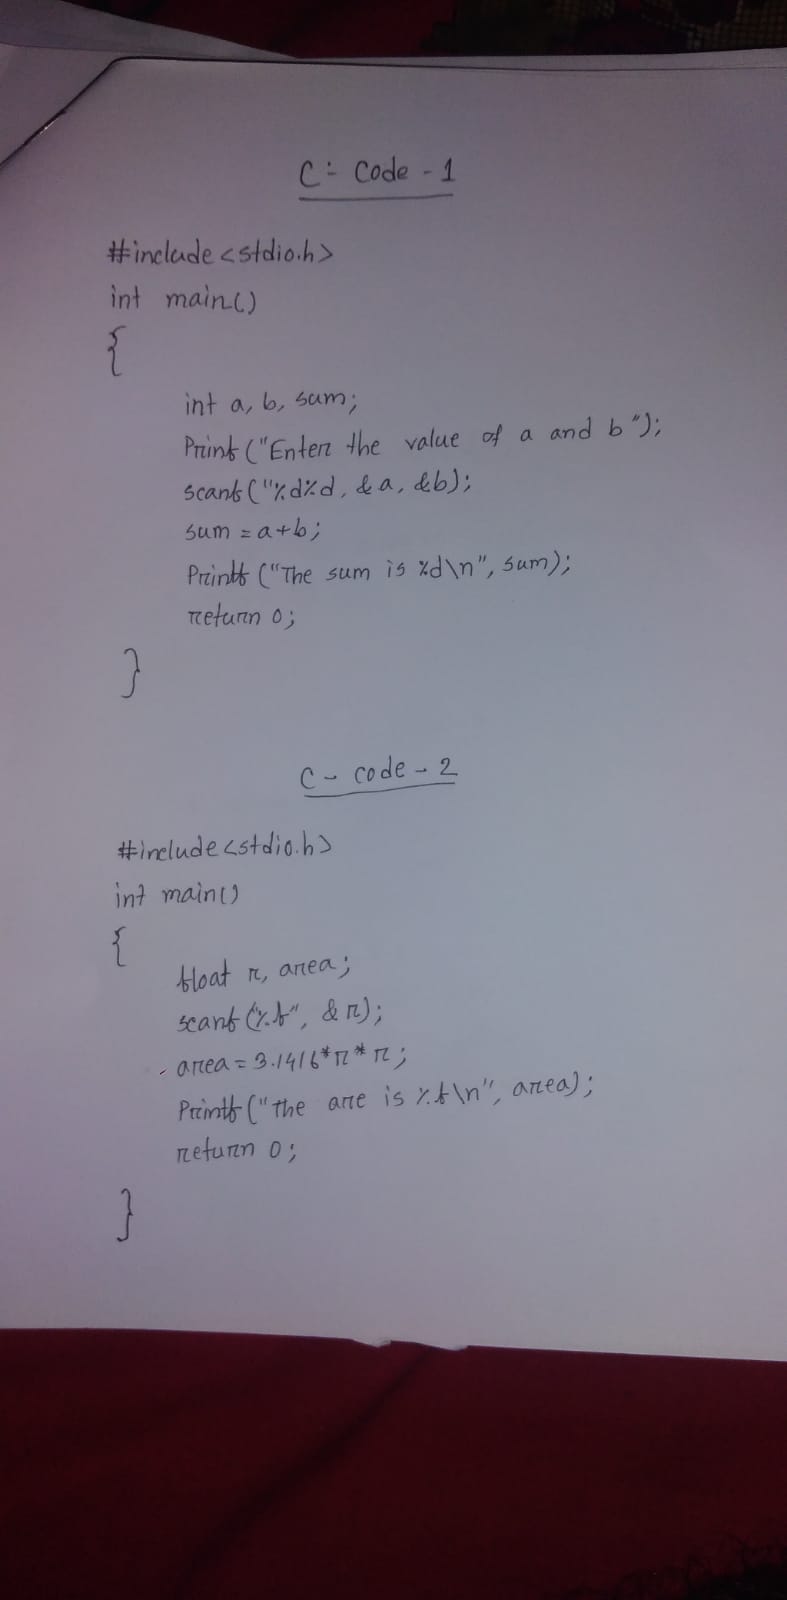 C:- Code - 1
#include<stdio.h>
int main()
{
int a, b, sum;
Print("Enter the value of a and b");
scanf("%d%d, &a, &b);
sum = a+b;
Printf("The sum is %d\n", sum);
return 0;
}
C - code - 2
#include<stdio.h>
int main()
{
float r, area;
scanf("%f", &r);
area = 3.1416*r*r;
Printf("the are is %f\n", area);
return 0;
}